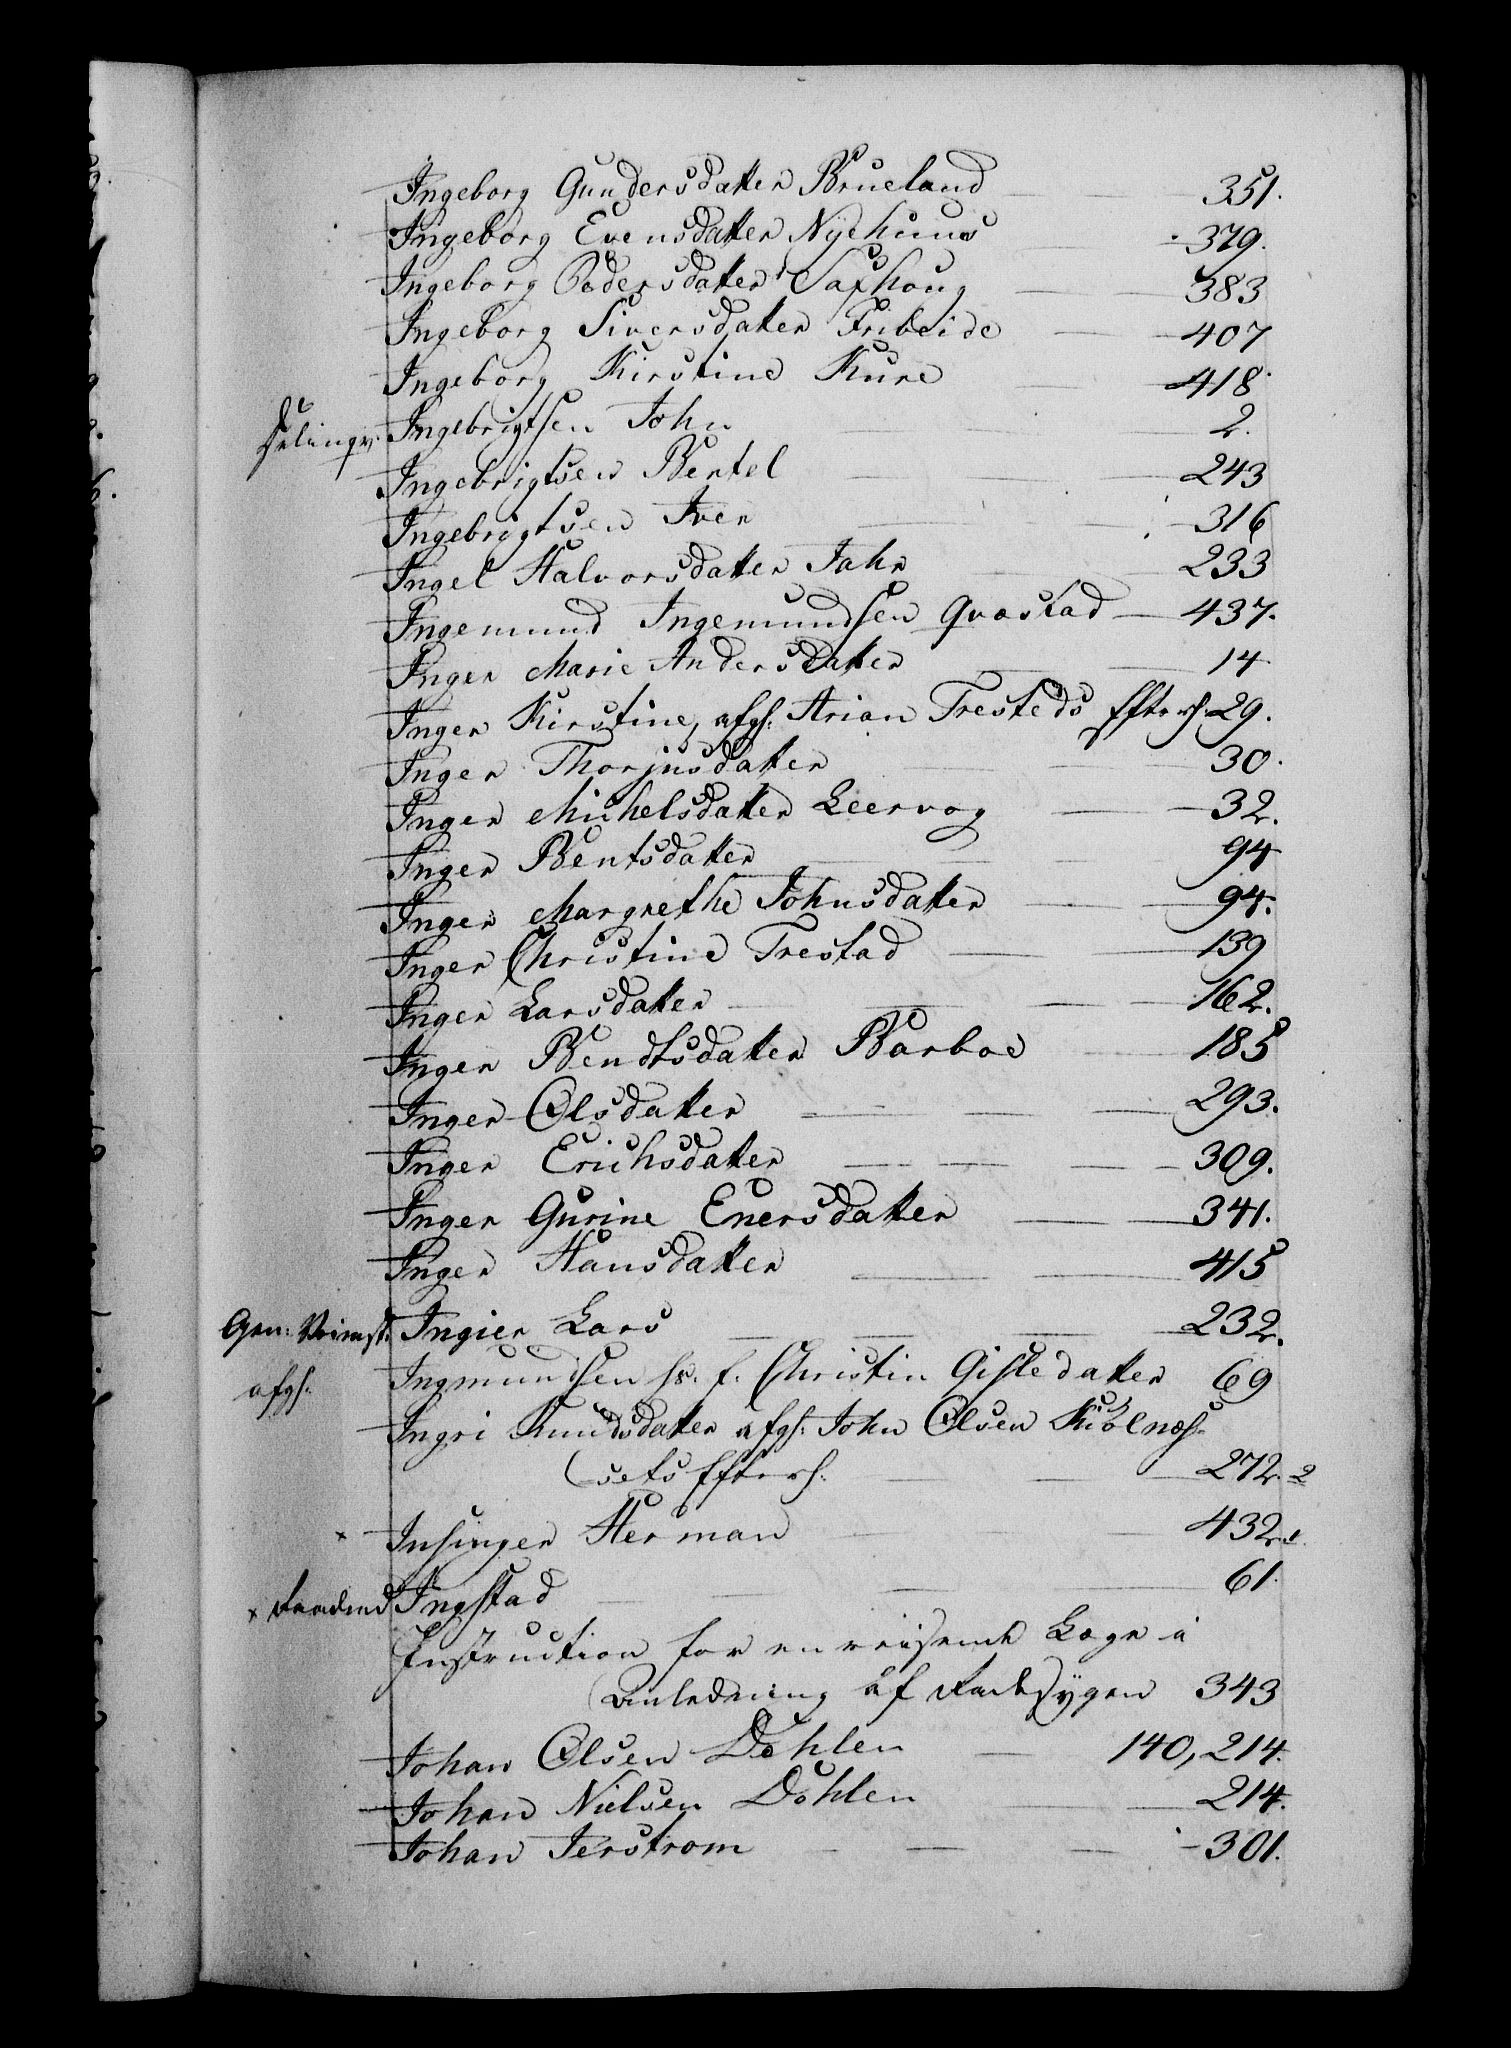 Ingeborg Gundersdatter Brueland 351.
Ingeborg Evensdatter Nyehuus 379.
Ingeborg Pedersdatter Saxhoug 383
Ingeborg Siversdatter Fribeide 407
Ingeborg Kirstine Kure 418.
Ingebrigtsen John 2.
Ingebrigtsen Bertel 243
Ingebrigtsen Iver 316
Ingel Halvorsdatter Jahr 233
Ingemund Ingemundsen Qvæstad 437.
Inger Marie Andersdatter 14
Inger Kirstine, afg: Arian Tresteds Efterl. 29.
Inger Thorjusdatter 30.
Inger Michelsdatter Leervog 32.
Inger Bentsdatter 94
Inger Margrethe Johnsdatter 94.
Inger Christine Trestad 139
Inger Larsdatter 162.
Inger Bendtsdatter Barboe 185
Inger Olsdatter 293.
Inger Erichsdatter 309.
Inger Gurine Enersdatter 341.
Inger Hansdatter 415
Ingier Lars 232.
afg: Ingmundsen f. Christin Gisledatter 69
Ingri Knudsdatter afg: John Olsen Kiølnæs-
sets Efterl. 272. 2
x Insinger Herman 432. 1.
x Ingstad 61.
Instruction for en reisende Læge i
Anledning af Radesygen 343
Johan Olsen Døhlen 140, 214.
Johan Nielsen Døhlen 214.
Johan Jerstrom 301.